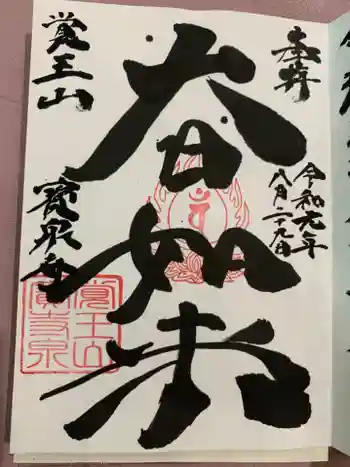 奉拝
令和元年
八月二十九日
大日如来
覚王山
寳泉寺
覚王山
寳泉寺